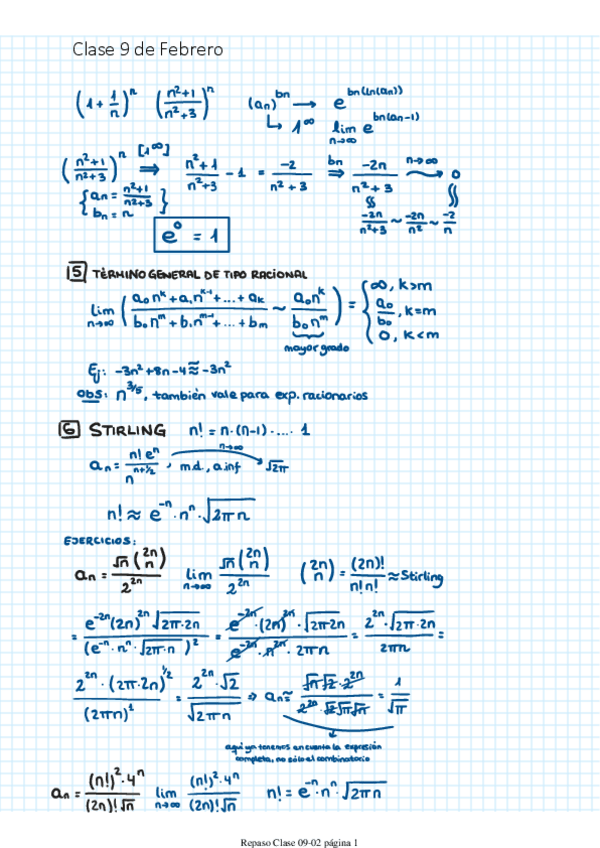 Clase 9 de Febrero
(1 + 1/n)^n   ((n²+1)/(n²+3))^n   (an)^bn → e^(bn(ln(an)))
↳ 1^∞   lim n→∞ e^(bn(an-1))
((n²+1)/(n²+3))^n [1^∞] ⇒ (n²+1)/(n²+3) - 1 = -2/(n²+3) bn ⇒ -2n/(n²+3) n→∞ → 0
{ an = (n²+1)/(n²+3)
bn = n }
-2n/(n²+3) ~ -2n/n² ~ -2/n
e^0 = 1
5 TÉRMINO GENERAL DE TIPO RACIONAL
lim n→∞ ( (a₀n^k + a₁n^(k-1) + ... + ak)/(b₀n^m + b₁n^(m-1) + ... + bm) ~ a₀n^k/b₀n^m ) = { ∞, k>m
a₀/b₀, k=m
0, k<m
mayor grado
Ej: -3n² + 8n - 4 ≈ -3n²
Obs: n^(3/5), también vale para exp. racionarios
6 STIRLING   n! = n·(n-1)·....· 1
an = n! e^n / n^(n+1/2), m.d., a.inf n→∞ → √2π
n! ≈ e^-n · n^n · √2πn
EJERCICIOS:
an = √n (2n n) / 2^2n   lim n→∞ √n (2n n) / 2^2n   (2n n) = (2n)!/(n! n!) ≈ Stirling
= e^-2n (2n)^2n √2π·2n / (e^-n · n^n · √2π·n)² = e^-2n · (2n)^2n · √2π·2n / (e^-2n · n^2n · 2πn) = 2^2n · √2π·2n / 2πn =
2^2n · (2π·2n)^1/2 / (2πn)^1 = 2^2n · √2 / √2πn ⇒ an ≈ √n √2 · 2^2n / (2^2n · √2 √π √n) = 1/√π
aquí ya tenemos en cuenta la expresión
completa, no sólo el combinatorio
an = (n!)² · 4^n / ((2n)! √n)   lim n→∞ (n!)² · 4^n / ((2n)! √n)   n! = e^-n · n^n · √2πn
Repaso Clase 09-02 página 1